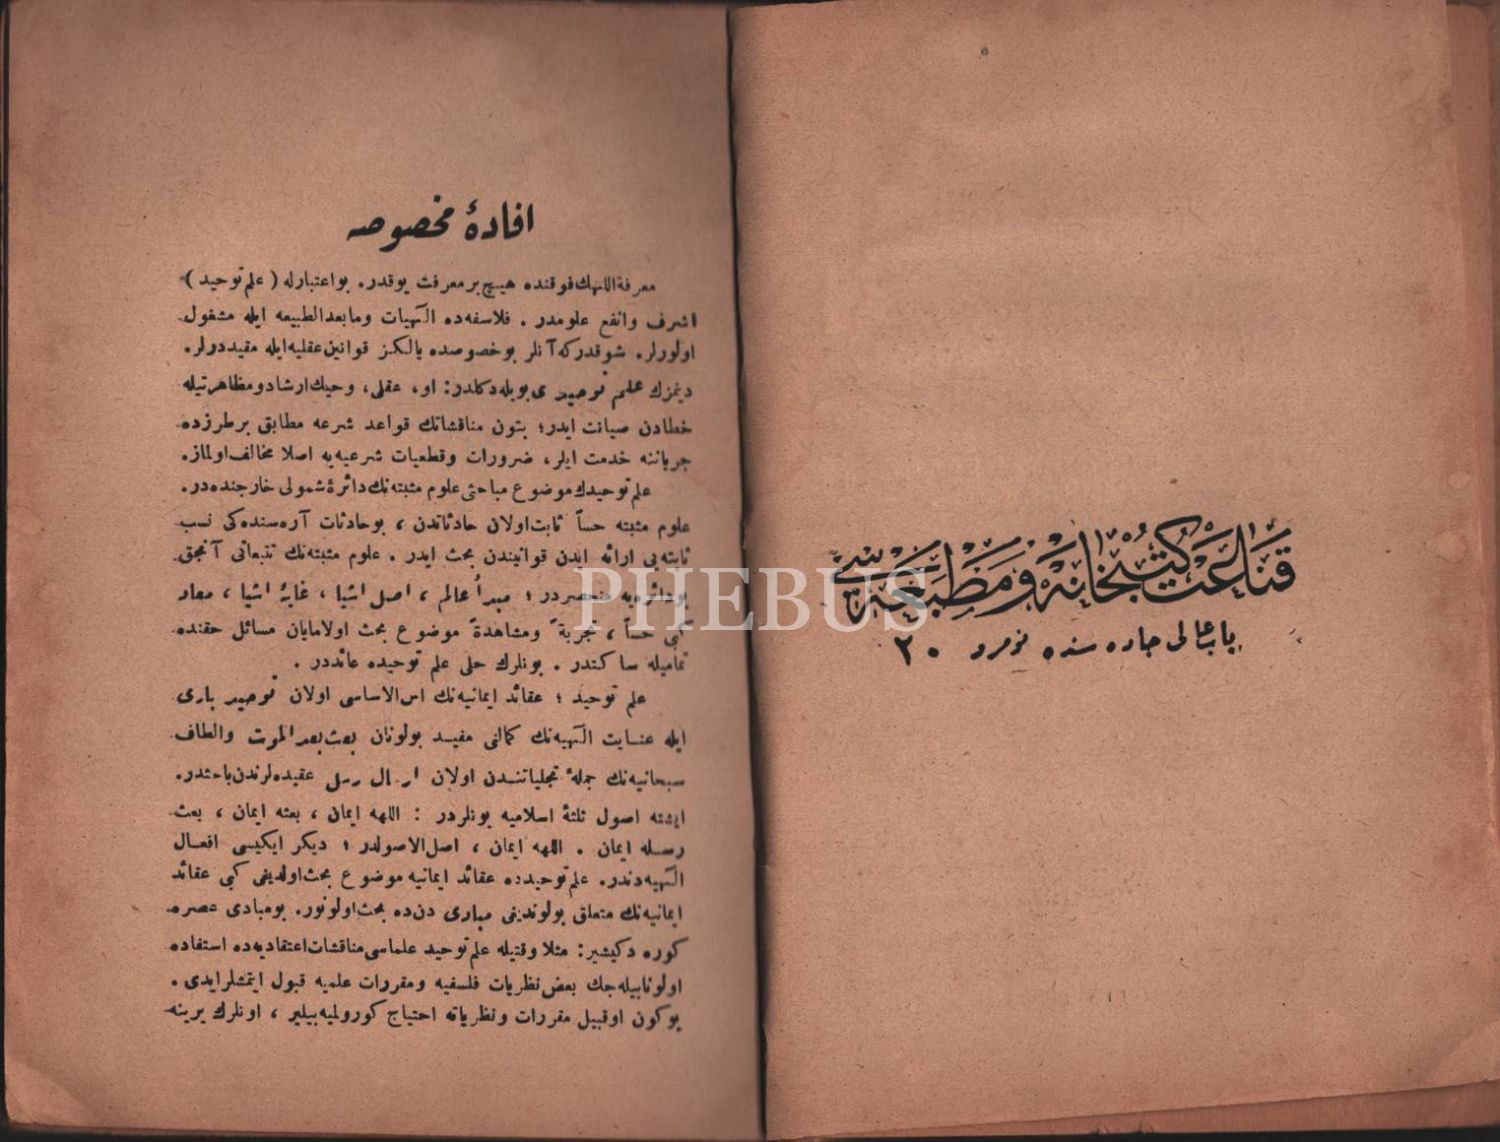 قناعت كتبخانه و مطبعه سی
باب عالی جاده سنده نومرو ٢٠
افادهٔ مخصوصه
معرفة اللهك فوقنده هیچ بر معرفت یوقدر. بو اعتبارله ( علم توحید )
اشرف وانفع علومدر . فلاسفه ده الٓهیات ومابعدالطبیعه ایله مشغول
اولورلر. شو قدر كه آنلر بو خصوصده یالكز قوانین عقلیه ایله مقیددرلر.
دینمزك علم توحیدی بویله دكلدر: او، عقلی، وحیك ارشاد و مظاهرتیله
خطادن صیانت ایدر؛ بتون مناقشاتك قواعد شرعه مطابق بر طرزده
جریاننه خدمت ایلر، ضرورات وقطعیات شرعیه یه اصلا مخالف اولماز.
علم توحیدك موضوع مباحثی علوم مثبته نك دائرهٔ شمولی خارجنده در.
علوم مثبته حساً ثابت اولان حادثاتدن ، بو حادثات آره سنده كی نسب
ثابته یی ارائه ایدن قوانیندن بحث ایدر . علوم مثبته نك تتبعاتی آنجق
بو دائره یه منحصردر ؛ مبدأ عالم ، اصل اشیا ، غایهٔ اشیا ، معاد
كبی حساً ، تجربةً ومشاهدةً موضوع بحث اولامایان مسائل حقنده
تمامیله ساكتدر . بونلرك حلی علم توحیده عائددر .
علم توحید ؛ عقائد ایمانیه نك اس الاساسی اولان توحید باری
ایله عنایت الٓهیه نك كمالنی مفید بولونان بعث بعد الموت والطاف
سبحانیه نك جملهٔ تجلیاتندن اولان ارسال رسل عقیده لرندن باحثدر.
ایشته اصول ثلثهٔ اسلامیه بونلردر : اللهه ایمان ، بعثه ایمان ، بعث
رسله ایمان . اللهه ایمان ، اصل الاصولدر ؛ دیكر ایكیسی افعال
الٓهیه دندر. علم توحیدده عقائد ایمانیه موضوع بحث اولدیغی كبی عقائد
ایمانیه نك متعلق بولوندیغی مبادی دن ده بحث اولونور. بو مبادی عصره
كوره دكیشیر: مثلا وقتیله علم توحید علماسی مناقشات اعتقادیه ده استفاده
اولونابیله جك بعض نظریات فلسفیه ومقررات علمیه قبول ایتمشلر ایدی .
بوكون او قبیل مقررات ونظریاته احتیاج كورولمیه بیلیر ، اونلرك یرینه
PHEBUS